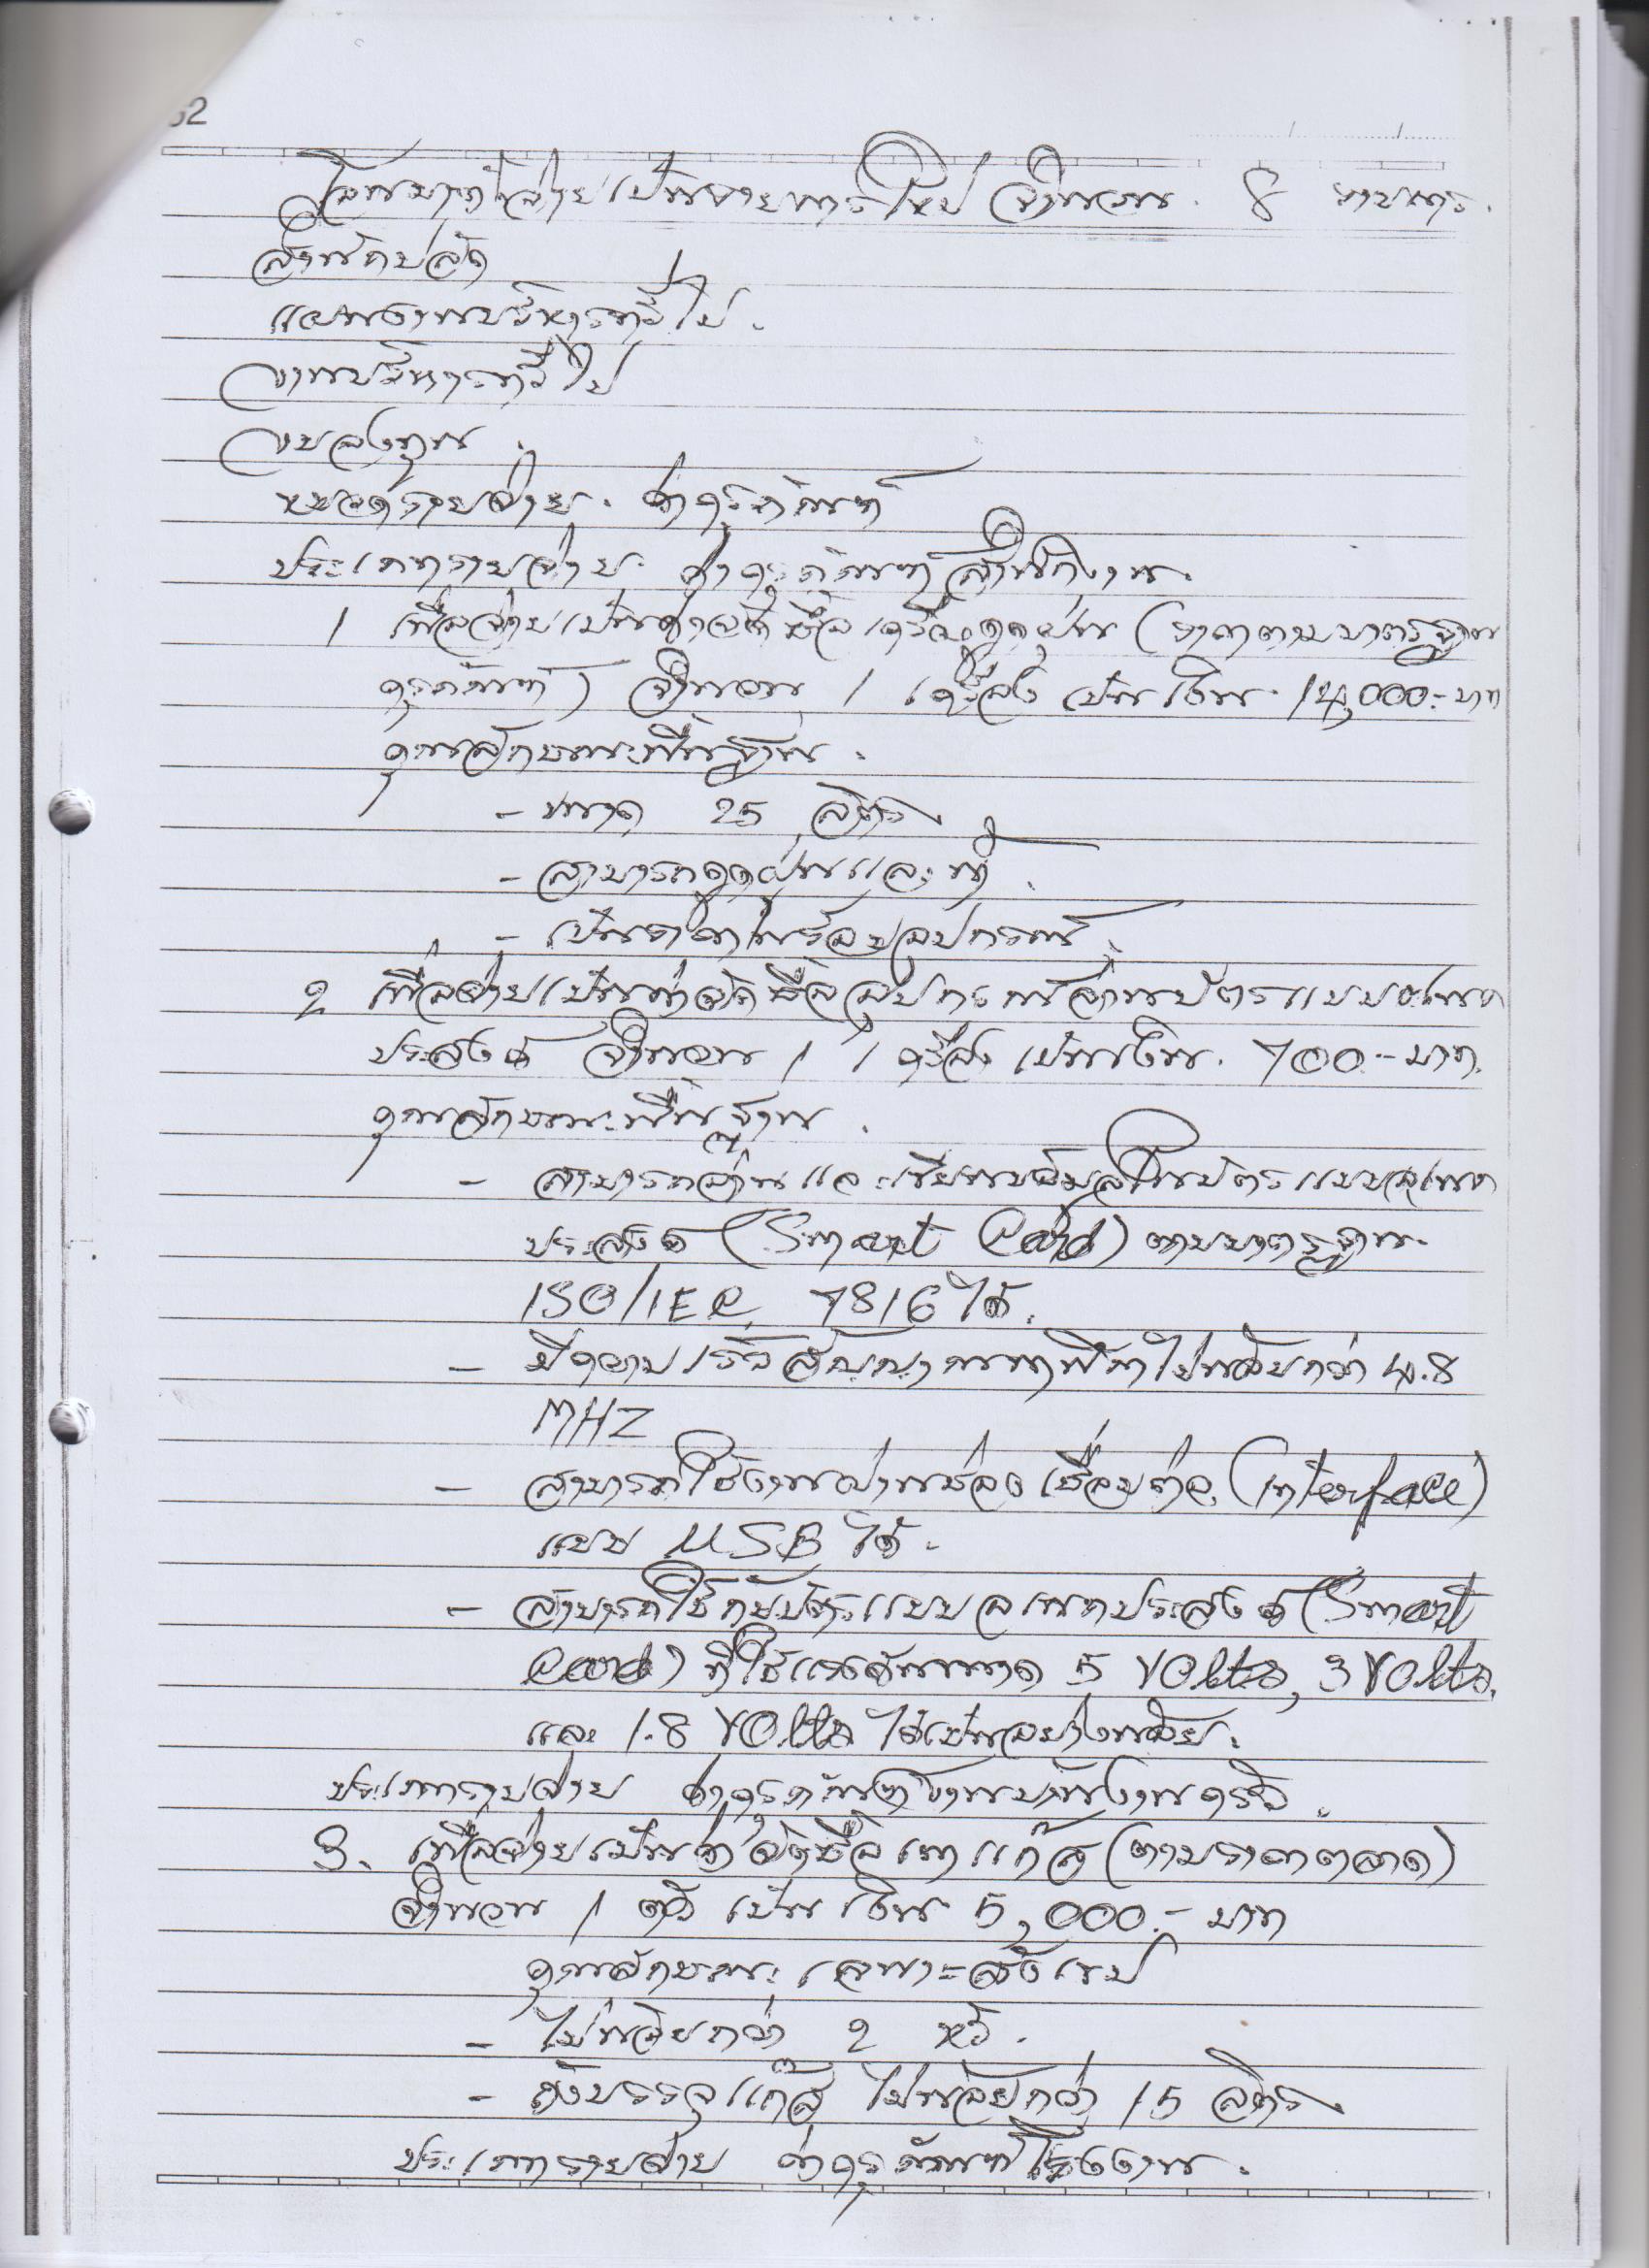 62
โอนมาตั้งจ่ายเป็นรายการใหม่ จำนวน 8 รายการ
สำนักปลัด
แผนงานบริหารทั่วไป
งานบริหารทั่วไป
งบลงทุน
หมวดรายจ่าย ค่าครุภัณฑ์
ประเภทรายจ่าย ค่าครุภัณฑ์สำนักงาน
1 เพื่อจ่ายเป็นค่าจัดซื้อเครื่องดูดฝุ่น (ราคาตามมาตรฐาน
ครุภัณฑ์) จำนวน 1 เครื่อง เป็นเงิน 14,000.- บาท
คุณลักษณะพื้นฐาน
- ขนาด 25 ลิตร
- สามารถดูดฝุ่นและน้ำ
- เป็นราคาพร้อมอุปกรณ์
2 เพื่อจ่ายเป็นค่าจัดซื้ออุปกรณ์อ่านบัตรแบบอเนก
ประสงค์ จำนวน 1 เครื่อง เป็นเงิน 700.- บาท
คุณลักษณะพื้นฐาน
- สามารถอ่านและเขียนข้อมูลในบัตรแบบอเนก
ประสงค์ (Smart Card) ตามมาตรฐาน
ISO/IEC 7816 ได้
- มีความเร็วสัญญาณนาฬิกาไม่น้อยกว่า 4.8
MHZ
- สามารถใช้งานผ่านช่องเชื่อมต่อ (Interface)
แบบ USB ได้
- สามารถใช้กับบัตรแบบอเนกประสงค์ (Smart
Card) ที่ใช้แรงดันขนาด 5 Volts, 3 Volts,
และ 1.8 Volts ได้เป็นอย่างน้อย
ประเภทรายจ่าย ค่าครุภัณฑ์งานบ้านงานครัว
3. เพื่อจ่ายเป็นค่าจัดซื้อเตาแก๊ส (ตามราคาตลาด)
จำนวน 1 ตัว เป็นเงิน 5,000.- บาท
คุณลักษณะเฉพาะสังเขป
- ไม่น้อยกว่า 2 หัว
- ถังบรรจุแก๊ส ไม่น้อยกว่า 15 ลิตร
ประเภทรายจ่าย ค่าครุภัณฑ์โรงงาน